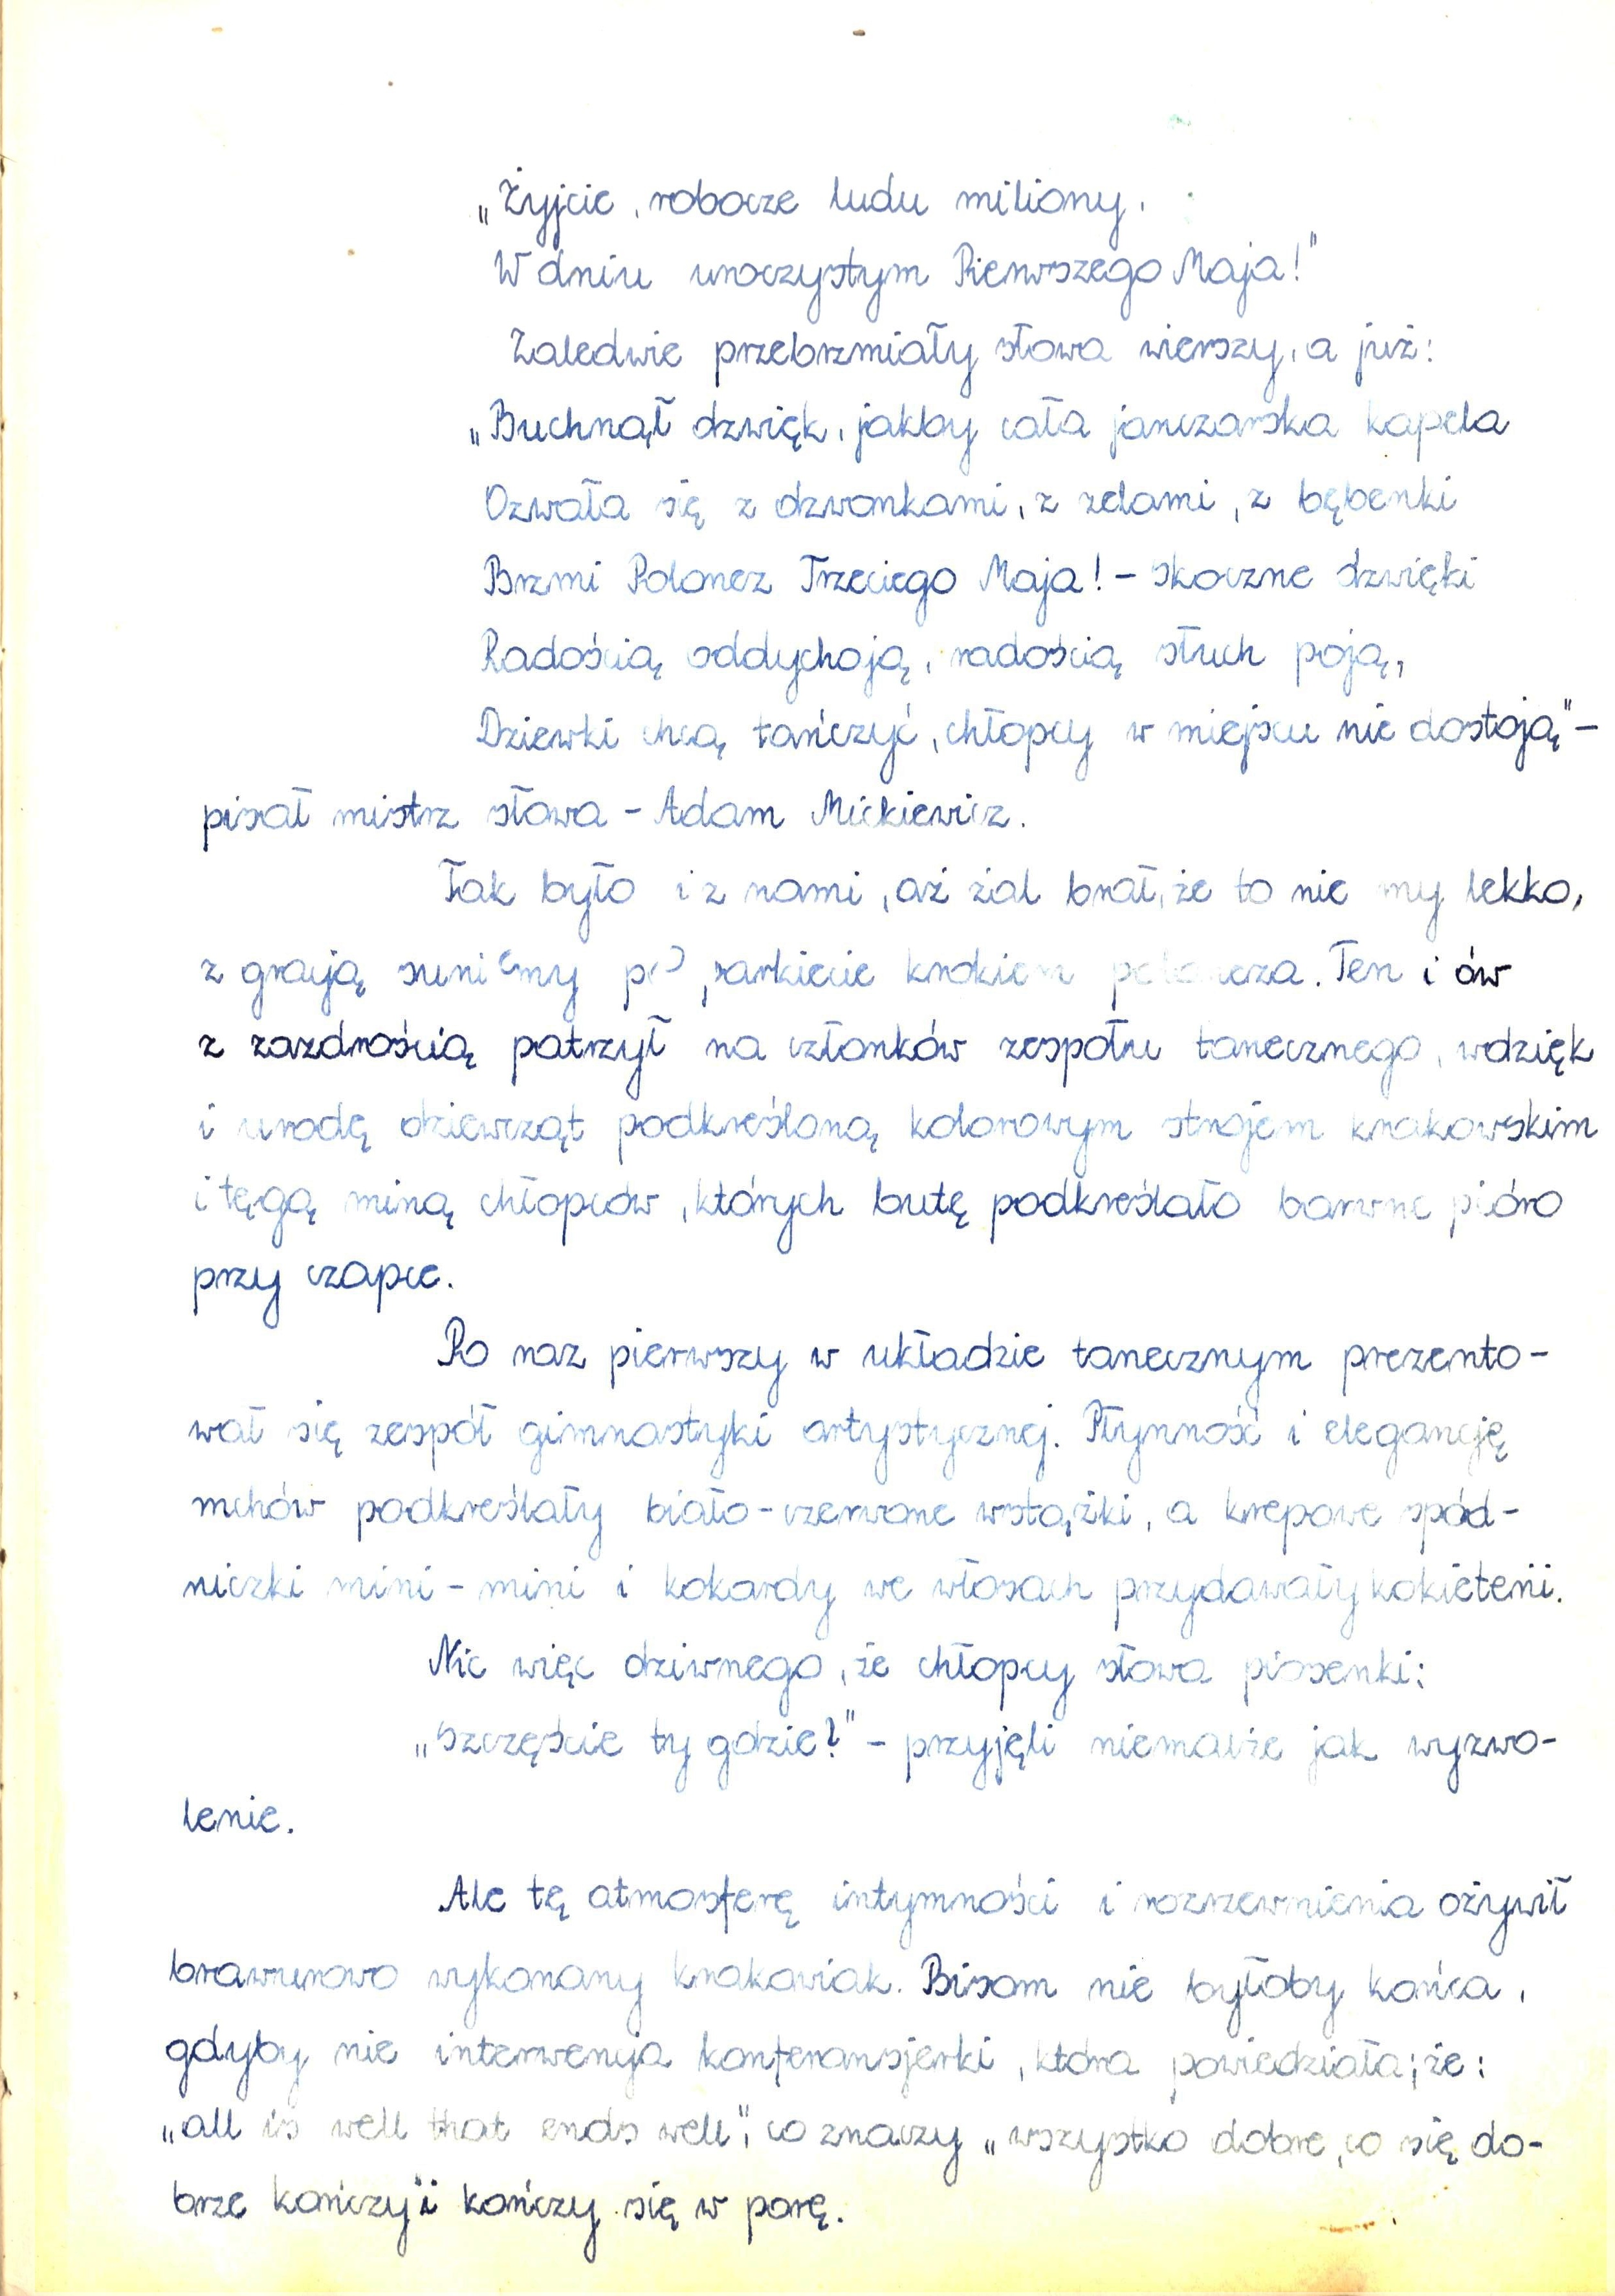 „Żyjcie, robocze ludu miliony,
W dniu uroczystym Pierwszego Maja!"
Zaledwie przebrzmiały słowa wierszy, a już:
„Buchnął dzwięk, jakby cała janczarska kapela
Ozwała się z dzwonkami, z zelami, z bębenki
Brzmi Polonez Trzeciego Maja! – Skoczne dzwięki
Radością oddychają, radością słuch poją,
Dziewki chcą tańczyć, chłopcy w miejscu nie dostoją" –
pisał mistrz słowa – Adam Mickiewicz.
Tak było i z nami, aż żal brał, że to nie my lekko,
z gracją suniemy po parkiecie krokiem poloneza. Ten i ów
z zazdrością patrzył na członków zespołu tanecznego, wdzięk
i urodę dziewcząt podkreśloną kolorowym strojem krakowskim
i tęgą miną chłopców, których butę podkreślało barwne pióro
przy czapce.
Po raz pierwszy w układzie tanecznym prezento-
wał się zespół gimnastyki artystycznej. Płynność i elegancję
ruchów podkreślały biało-czerwone wstążki, a krepowe spód-
niczki mini-mini i kokardy we włosach przydawały kokieterii.
Nic więc dziwnego, że chłopcy słowa piosenki:
„Szczęście ty gdzie?" – przyjęli niemalże jak wyzwo-
lenie.
Ale tę atmosferę intymności i rozrzewnienia ożywił
brawurowo wykonany krakowiak. Bisom nie byłoby końca,
gdyby nie interwencja konferansjerki, która powiedziała, że:
„all is well that ends well", co znaczy „wszystko dobre, co się do-
brze kończy" i kończy się w porę.